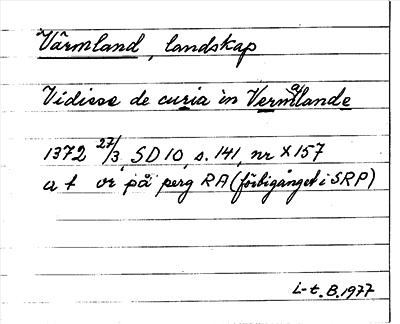 Värmland, landskap
Vidisse de curia in Vermalande
1372 27/3, SD 10, s. 141, nr X157
a t or på perg RA (förbigånget i SRP)
L-t. B. 1977